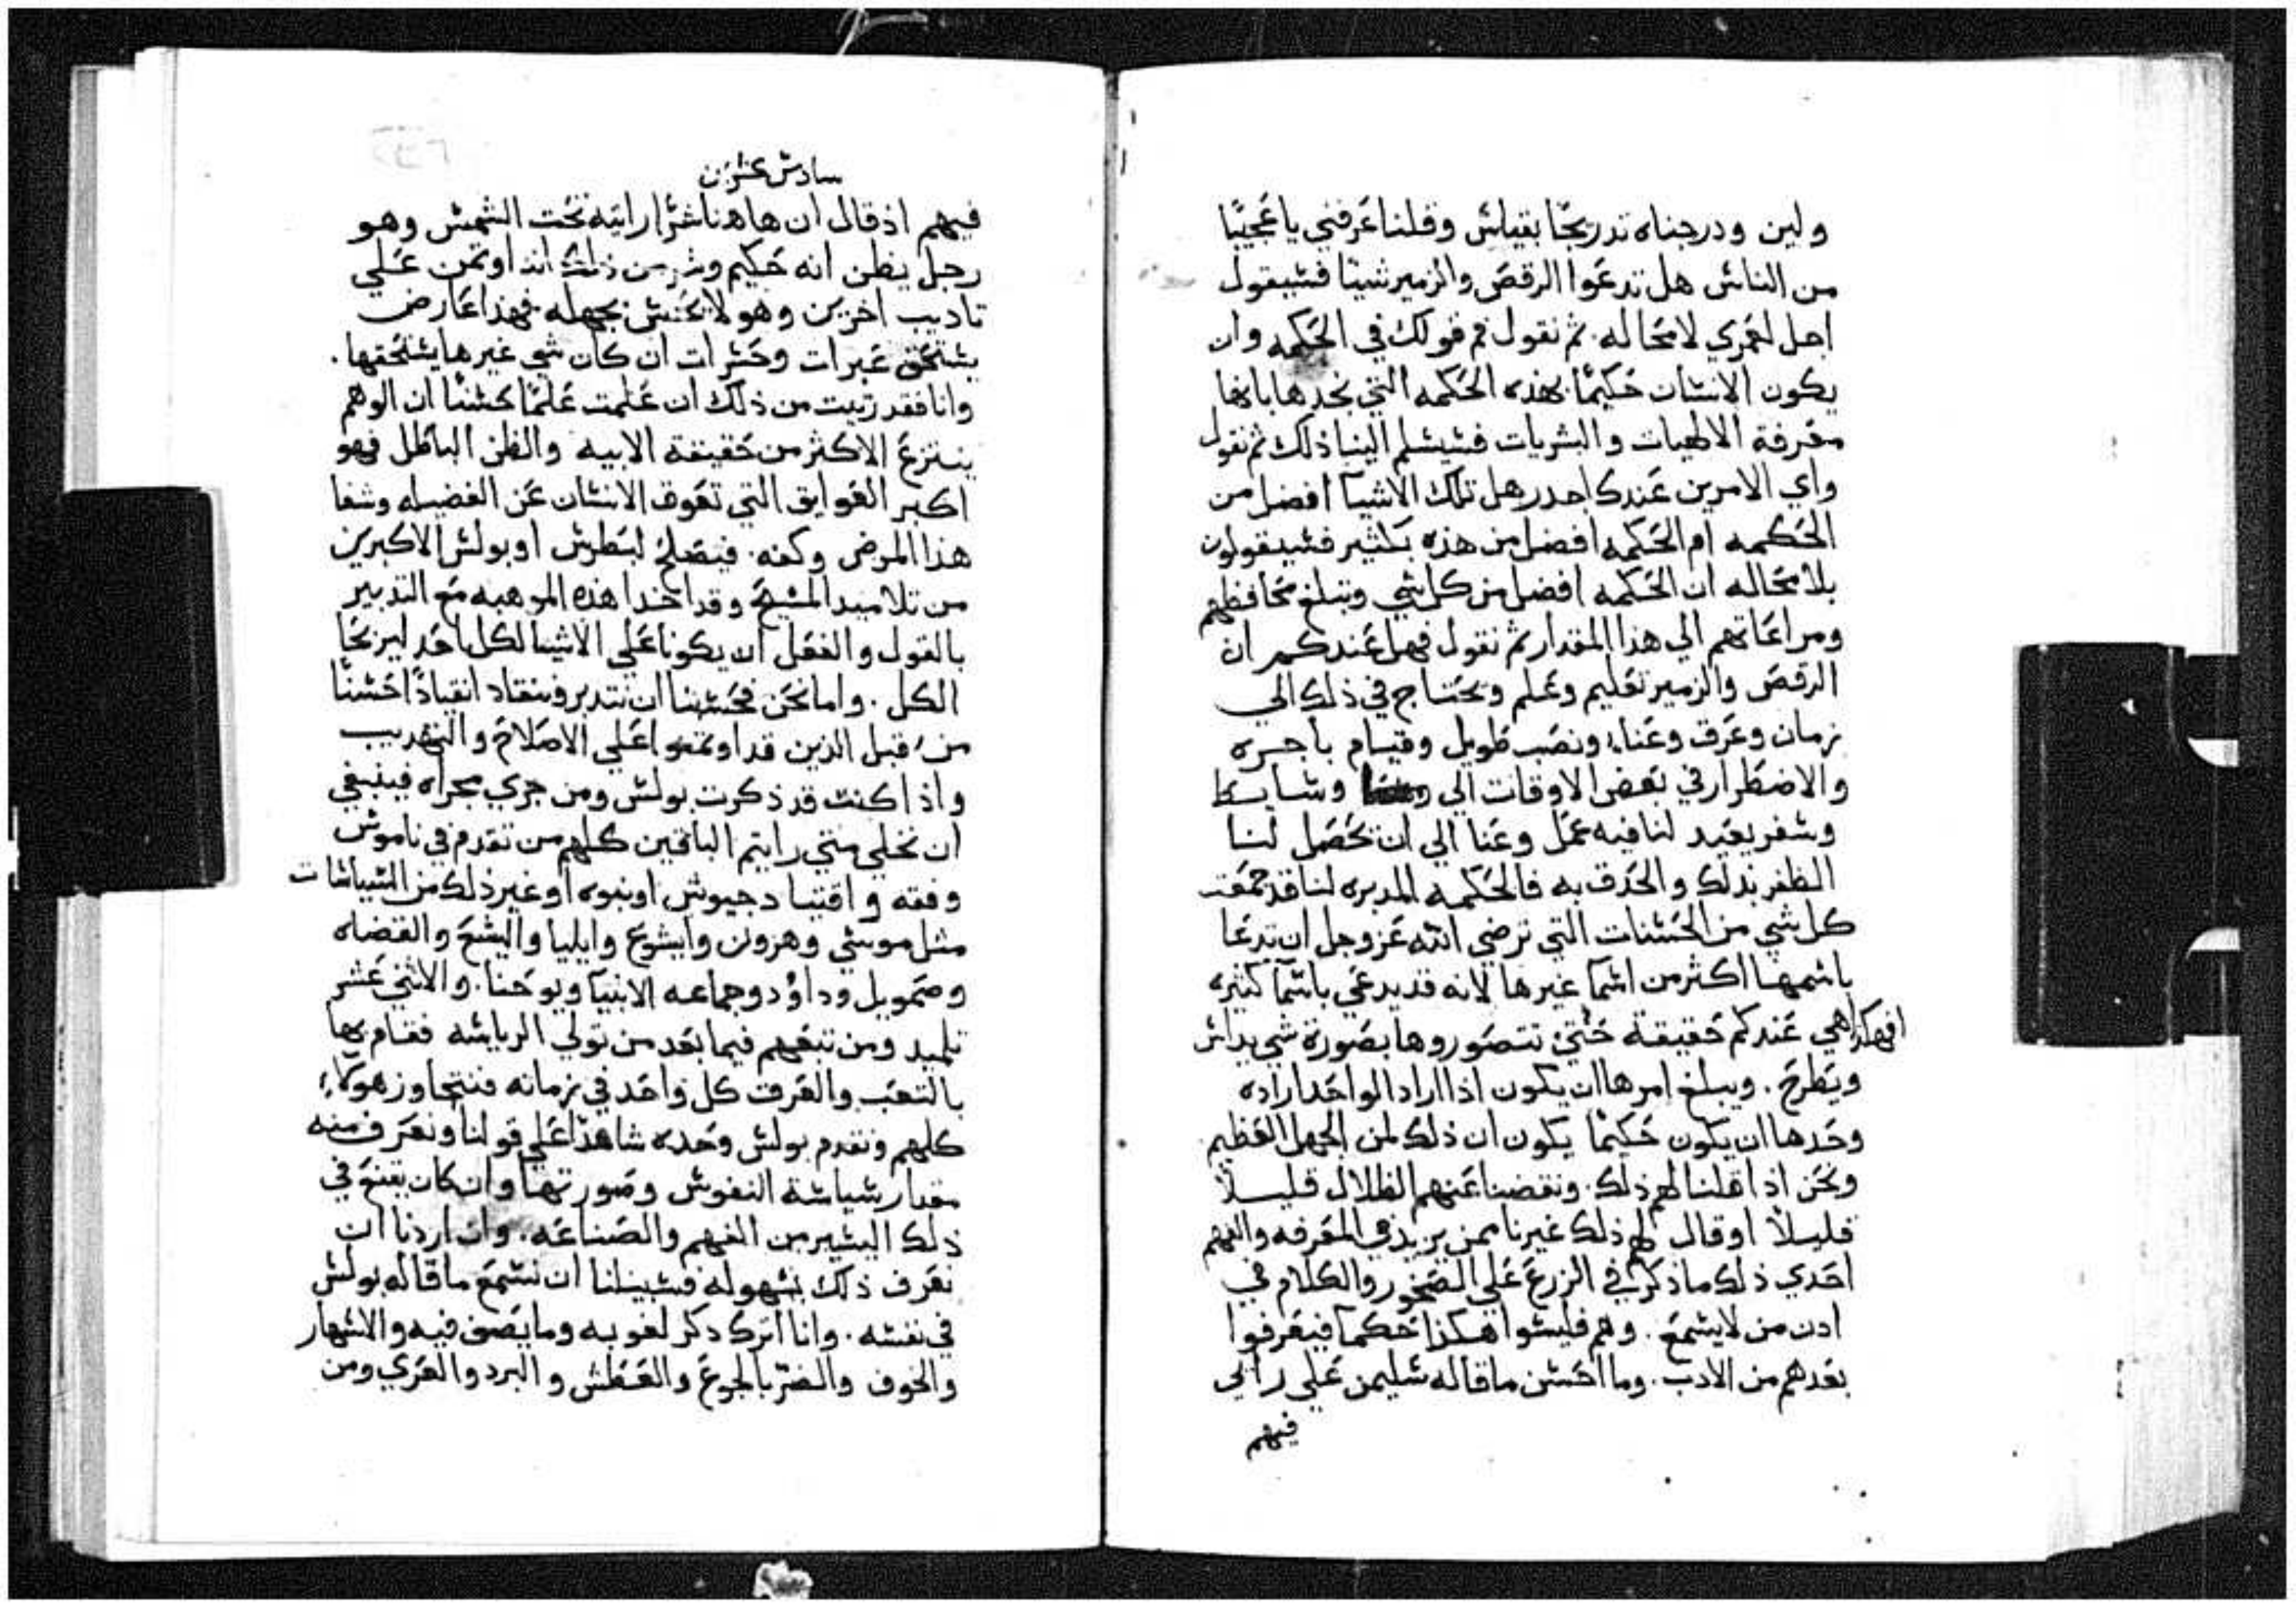 ولين ودرجناه تدريجًا بقياس وقلنا عرفني يا عجيبًا
من الناس هل تدعوا الرقص والزمير شيئا فسيقول
اجل لعمري لا محاله. ثم نقول فم قولك في الحكمه وان
يكون الانسان حكيمًا. بهذه الحكمه التي نحدها بانها
معرفة الالهيات والبشريات فسيسلم الينا ذلك ثم نقول
واي الامرين عندك اجدر هل تلك الاشيآ افضل من
الحكمه ام الحكمه افضل من هذه بكثير فسيقولون
بلا محاله ان الحكمه افضل من كل شي وتبلغ محافظهم
ومراعاتهم الي هذا المقدار ثم نقول فهل عندكم ان
الرقص والزمير تعليم وعلم ونحتاج في ذلك الي
زمان وعرق وعناء ونصب طويل وقيام باجره
والاضطرار في بعض الاوقات الي وسايط
وسفر بعيد لنا فيه عمل وعنا الي ان تحصل لنا
الظفر بذلك والحذق به فالحكمه المدبره لنا قد جمعت
كل شي من الحسنات التي ترضي الله عز وجل ان تدعا
باسمها اكثر من اسمآ غيرها لانه قد يدعي باسمآ كثيره
افهكذا هي عندكم حقيقة حتي تتصوروها بصورة شي يداس
ويطرح. ويبلغ امرها ان يكون اذا اراد الواحد اراده
وحدها ان يكون حكيمًا يكون ان ذلك لمن الجهل العظيم
ونحن اذا قلنا لهم ذلك. ونفضنا عنهم الظلال قليلا
قليلا او قال لهم ذلك غيرنا ممن يزيد في المعرفه والفهم
احدي ذلك ما ذكر في الزرع علي الصخور والكلام في
ادن من لا يسمع. وهم فليسوا هكذا حكمآ فيعرفوا
بعدهم من الادب. وما احسن ما قاله سليمن علي رايي
فيهم
سادس عشرين
فيهم اذ قال ان هاهنا شرًا رايته تحت الشمس وهو
رجل يظن انه حكيم وشر من ذلك انه اوتمن علي
تاديب اخرين وهو لا يحس بجهله فهذا عارض
يستحق عبرات وحسرات ان كان شي غيرها يستحقها.
وانا فقد رتيت من ذلك ان علمت علمًا حسنًا ان الوهم
ينتزع الاكثر من حقيقة الابيه والظن الباطل فهو
اكبر العوايق التي تعوق الانسان عن الفضيله وشفا
هذا المرض وكفه. فيصلح لبطرس او بولس الاكبرين
من تلاميد المسيح وقد اخدا هذه الموهبه مع التدبير
بالقول والفعل ان يكونا علي الاشيا لكل احد ليربحا
الكل. واما نحن فحسبنا ان نتدبر وننقاد انقيادًا حسنًا
من قبل الذين قد اوتمنوا علي الاصلاح والتهديب
واذا كنت قد ذكرت بولس ومن جري مجراه فينبغي
ان نخلي متي رايتم الباقين كلهم من تقدم في ناموس
وفقه واقتياد جيوش او نبوه او غير ذلك من السياسات
مثل موسي وهرون وايشوع وايليا واليسع والقضاه
وصمويل وداوُد وجماعه الانبيآ ويوحنا. والاثني عشر
تلميد ومن تبعهم فيما بعد من تولي الرياسه فقام بها
بالتعب والعرق كل واحد في زمانه فنتجاوز هولآء
كلهم ونقدم بولس وحده شاهدًا علي قولنا ونعرف منه
مقدار سياسة النفوس وصورتها وان كان يقنع في
ذلك اليسير من الفهم والصناعه. وان اردنا ان
نعرف ذلك بسهوله فسبيلنا ان نسمع ما قاله بولس
في نفسه. وانا اترك ذكر لغوبه وما يصف فيه والاسهار
والخوف والضر بالجوع والعطش والبرد والعري ومن